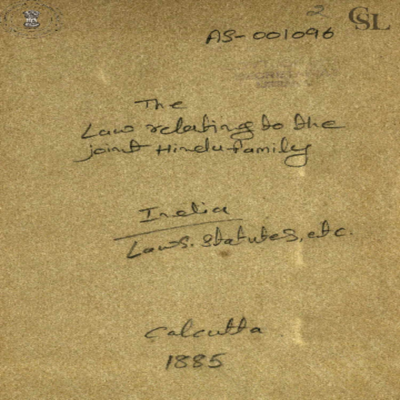 2
CSL
AS-001096
The
Law relating to the
joint Hindu family
India
Laws. Statutes, etc.
Calcutta
1885